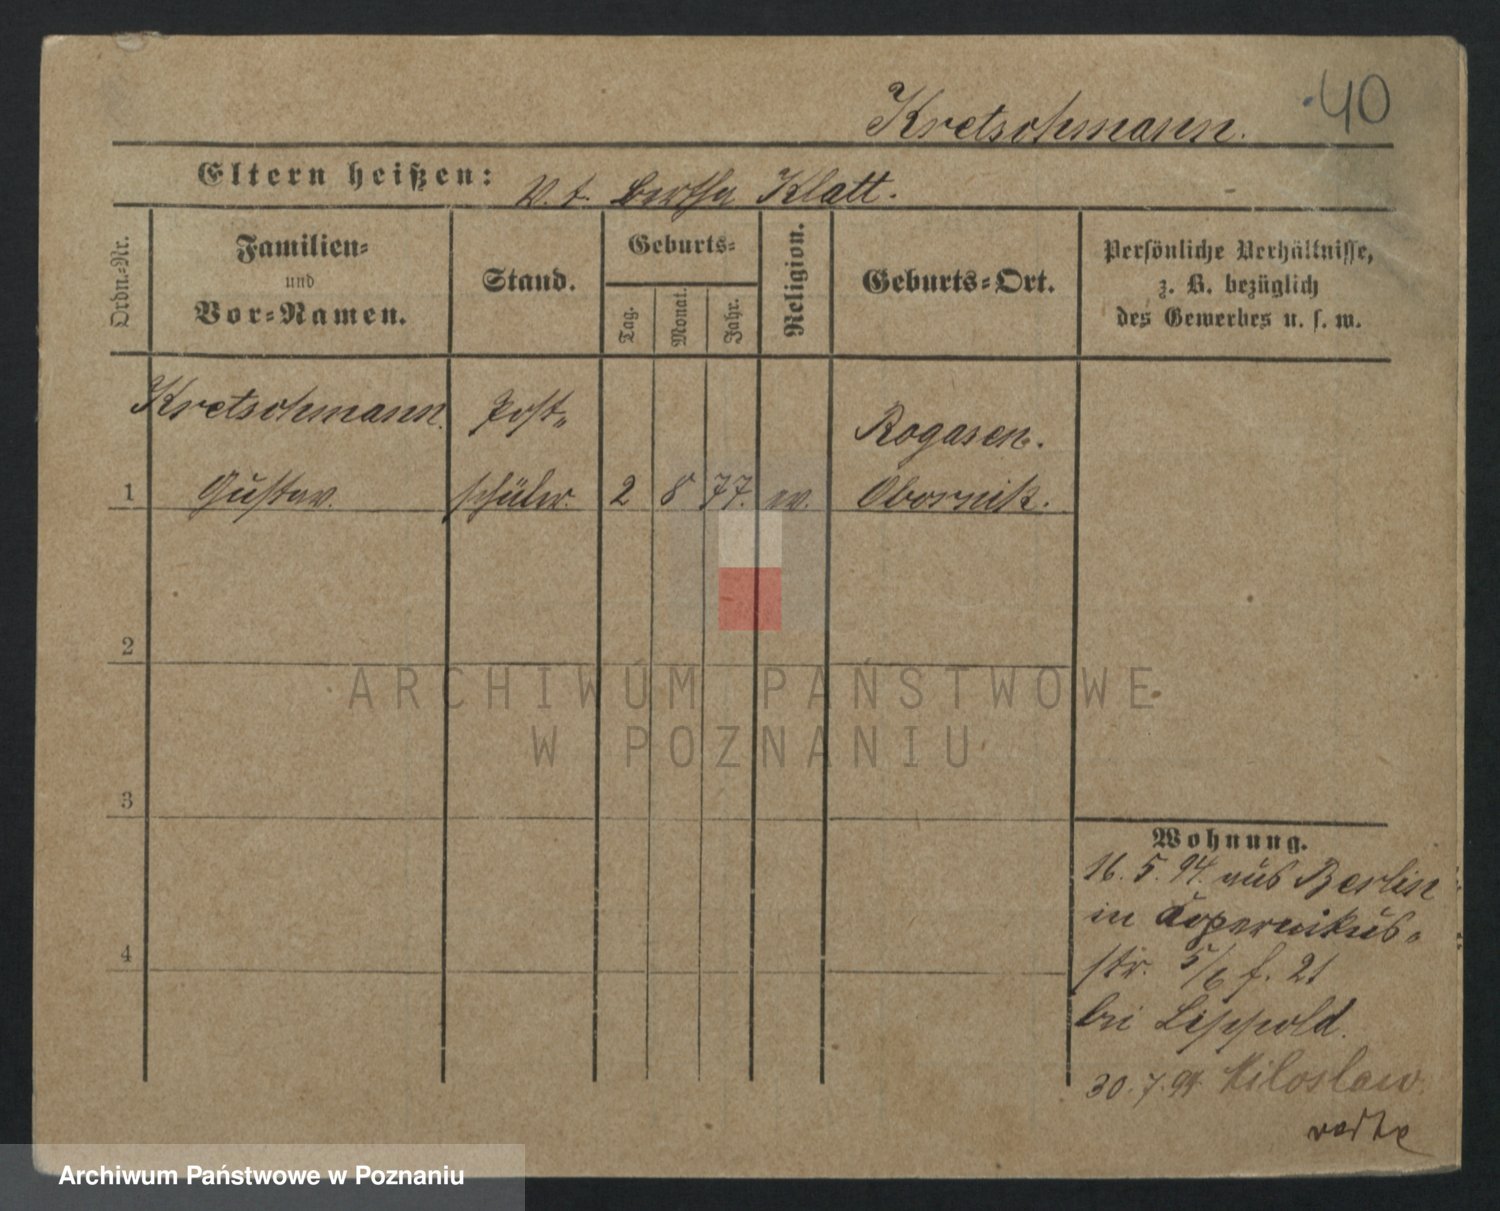 40
Kretschmann.
Eltern heißen: V. t. Bertha Klatt.
Ordn.=Nr.
Familien=
und
Vor=Namen.
Stand.
Geburts=
Tag.
Monat.
Jahr.
Religion.
Geburts=Ort.
Persönliche Verhältnisse,
z. B. bezüglich
des Gewerbes u. s. w.
Kretschmann. Post= Rogasen.
1 Gustav. schüler. 2 8 77. ev. Obornik.
2
3
4
ARCHIWUM PAŃSTWOWE
W POZNANIU
Wohnung.
16. 5. 94. aus Berlin
in Kopernikus=
str. 5/6 f. 21
bei Lippold.
30. 7. 94 Miloslaw.
Archiwum Państwowe w Poznaniu